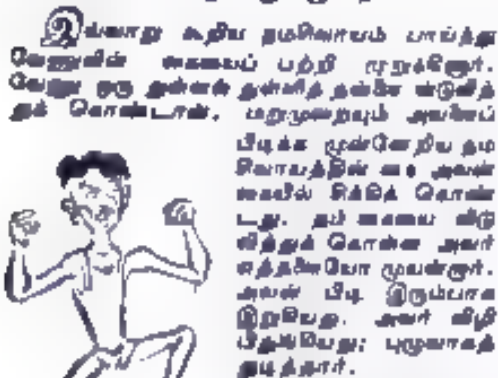 இவ்வாறு கூறிய நமசிவாயம் பாய்ந்து
வேலுவின் கையைப் பற்றி முறுக்கினார்.
வேலு ஒரு தள்ளித் தன்னை விடுவித்
துக் கொண்டான். மறுமுறையும் அவனைப்
பிடிக்க முன்னேறிய நம
சிவாயத்தின் கை அவன்
கையில் சிக்கிக் கொண்
டது. தம் கையை விடு
வித்துக் கொள்ள அவர்
எத்தனையோ முயன்றார்.
அவன் பிடி இரும்பாக
இறுகியது. அவர் விழி
பிதுங்கியது; புழுவாகத்
துடித்தார்.